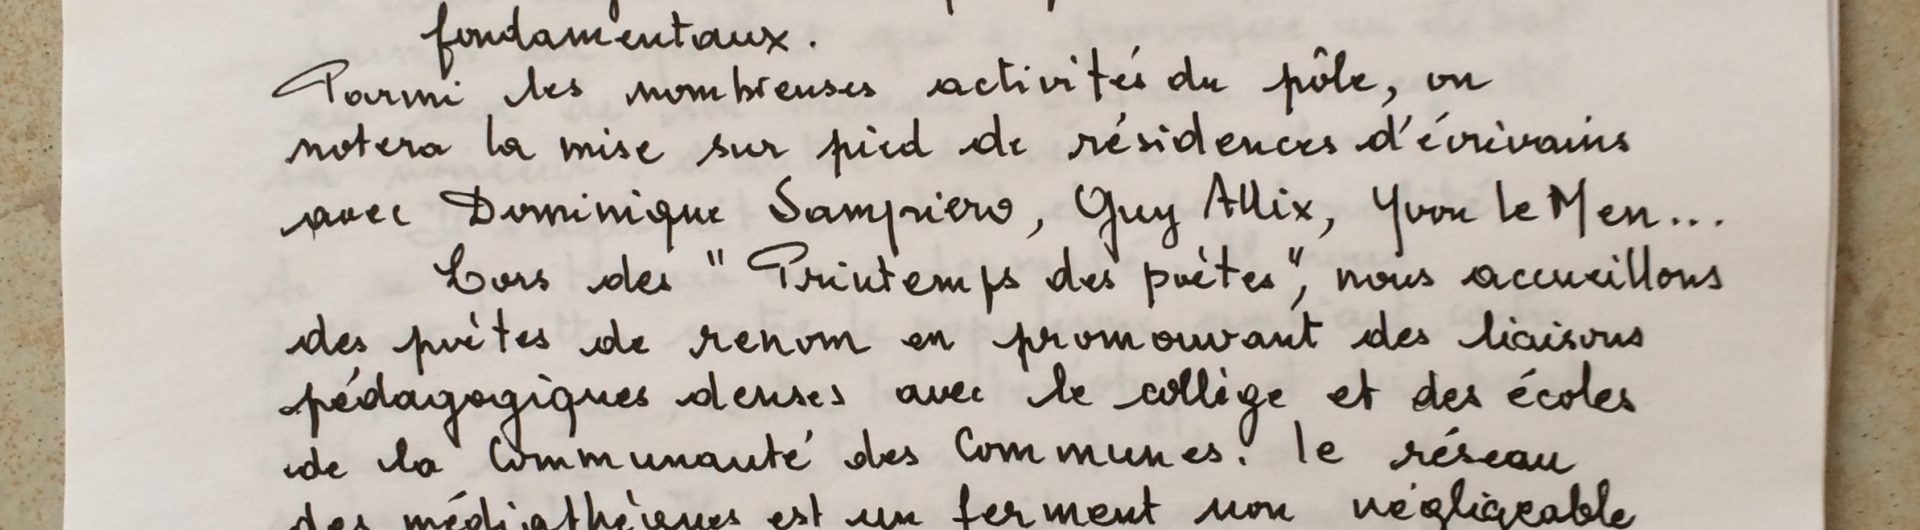 fondamentaux.
Parmi les nombreuses activités du pôle, on
notera la mise sur pied de résidences d'écrivains
avec Dominique Sampiero, Guy Allix, Yvon le Men...
Lors des "Printemps des poètes", nous accueillons
des poètes de renom en promouvant des liaisons
pédagogiques denses avec le collège et des écoles
de la Communauté des Communes. le réseau
des médiathèques est un ferment non négligeable